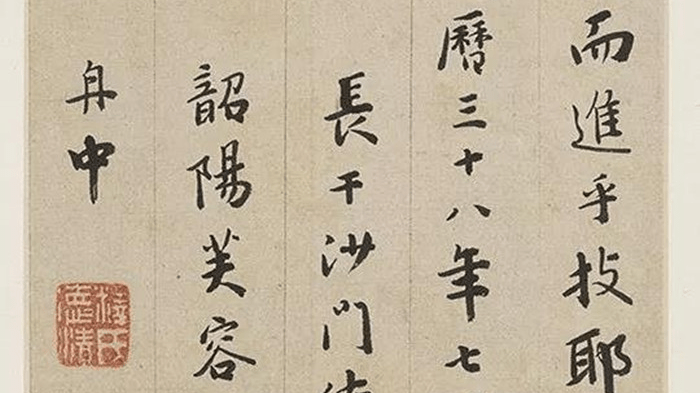 而進乎技耶
曆三十八年七
長干沙門
韶陽芙容
舟中
釋氏悳清